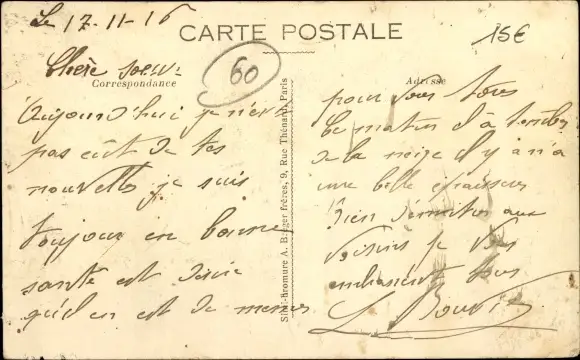 Le 17-11-16
CARTE POSTALE
15€
60
Chère soeur
Correspondance
Adresse
Aujourd'hui je n'ai
pas eût de tes
nouvelles je suis
toujour en bonne
santé et desire
qu'il en est de meme
Simili-Bromure A. Breger frères, 9, Rue Thénard, Paris
pour vous tous
Le matin il à tombé
de la neige il y an a
une belle épaisseur
Rien d'autres aux
Voisins je vous
embrassent tous
L. Bouvi